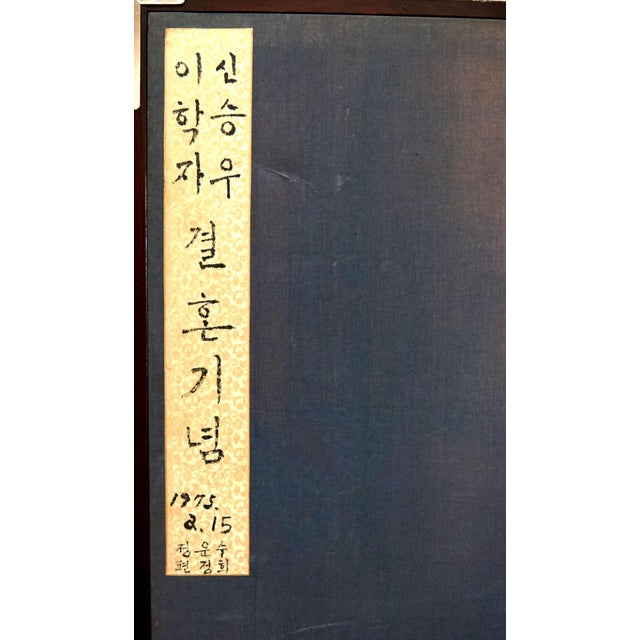 신승우
이학자
결혼기념
1975.
2.15
정운수
편정희